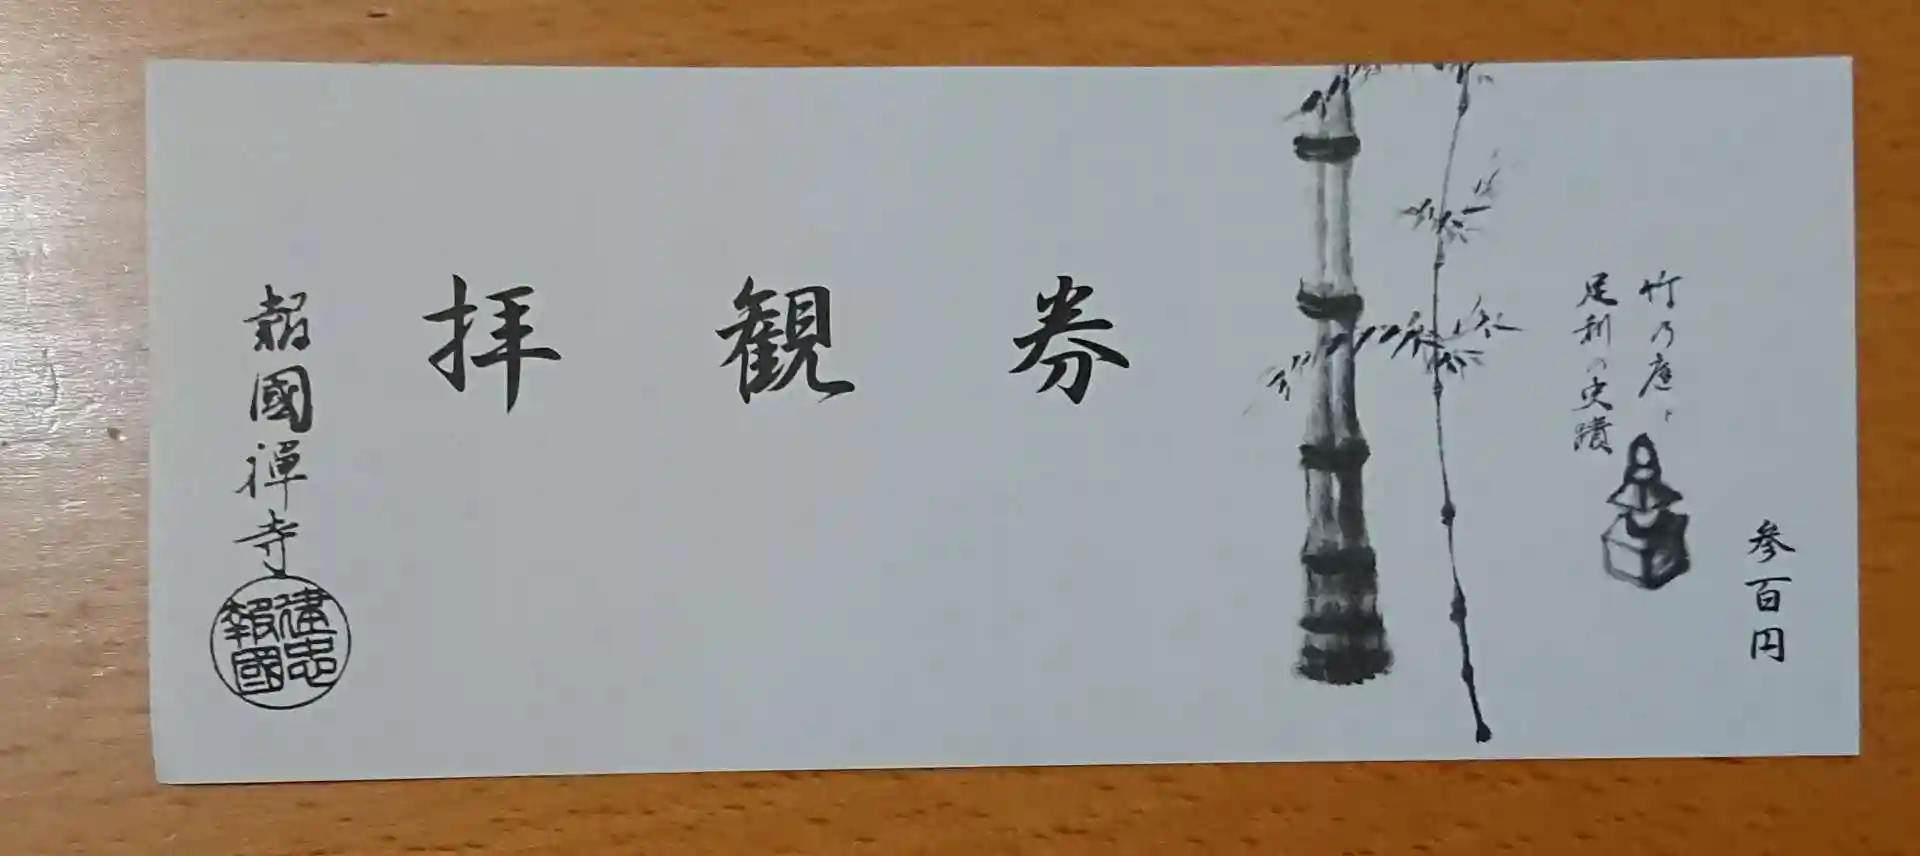 参百円
竹乃庭と
足利の史蹟
拝観券
報國禅寺
建忠
報國